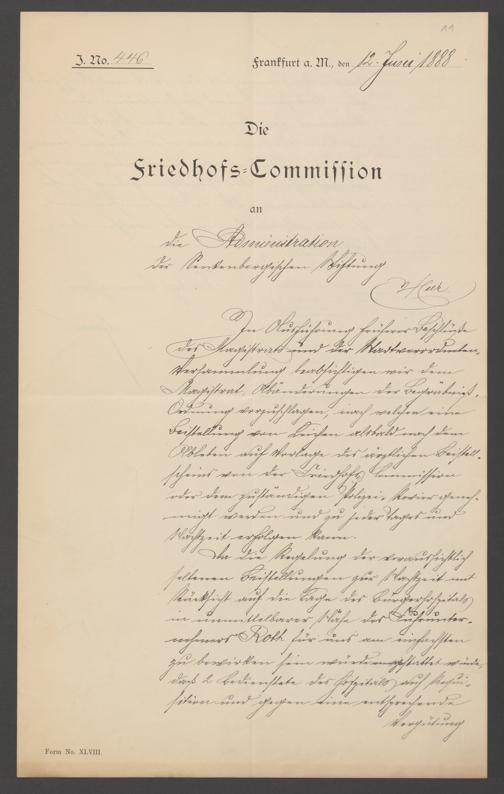 11
J. No. 446
Frankfurt a. M., den 12. Juni 1888
Die
Friedhofs-Commission
an
die Administration
der Senkenbergischen Stiftung
Hier
In Ausführung früherer Beschlüsse
des Magistrats und der Stadtverordneten-
Versammlung beabsichtigen wir dem
Magistrat Abänderungen der Begräbniß-
Ordnung vorzuschlagen, nach welchen eine
Beistellung von Leichen alsbald nach dem
Ableben auf Vorlage des ärztlichen Beistell-
scheins von der Friedhofs Commission
oder dem zuständigen Polizei-Revier geneh-
migt werden und zu jeder Tages und
Nachtzeit erfolgen kann.
Da die Regelung der voraussichtlich
seltenen Beistellungen zur Nachtzeit mit
Rücksicht auf die Lage des Bürgerhospitals
in unmittelbarer Nähe des Fuhrunter-
nehmers Roth für uns am einfachsten
zu bewirken sein würde, gestattet würde,
daß 2 Bedienstete des Hospitals auf Requi-
sition und gegen eine entsprechende
Vergütung
Form No. XLVIII.